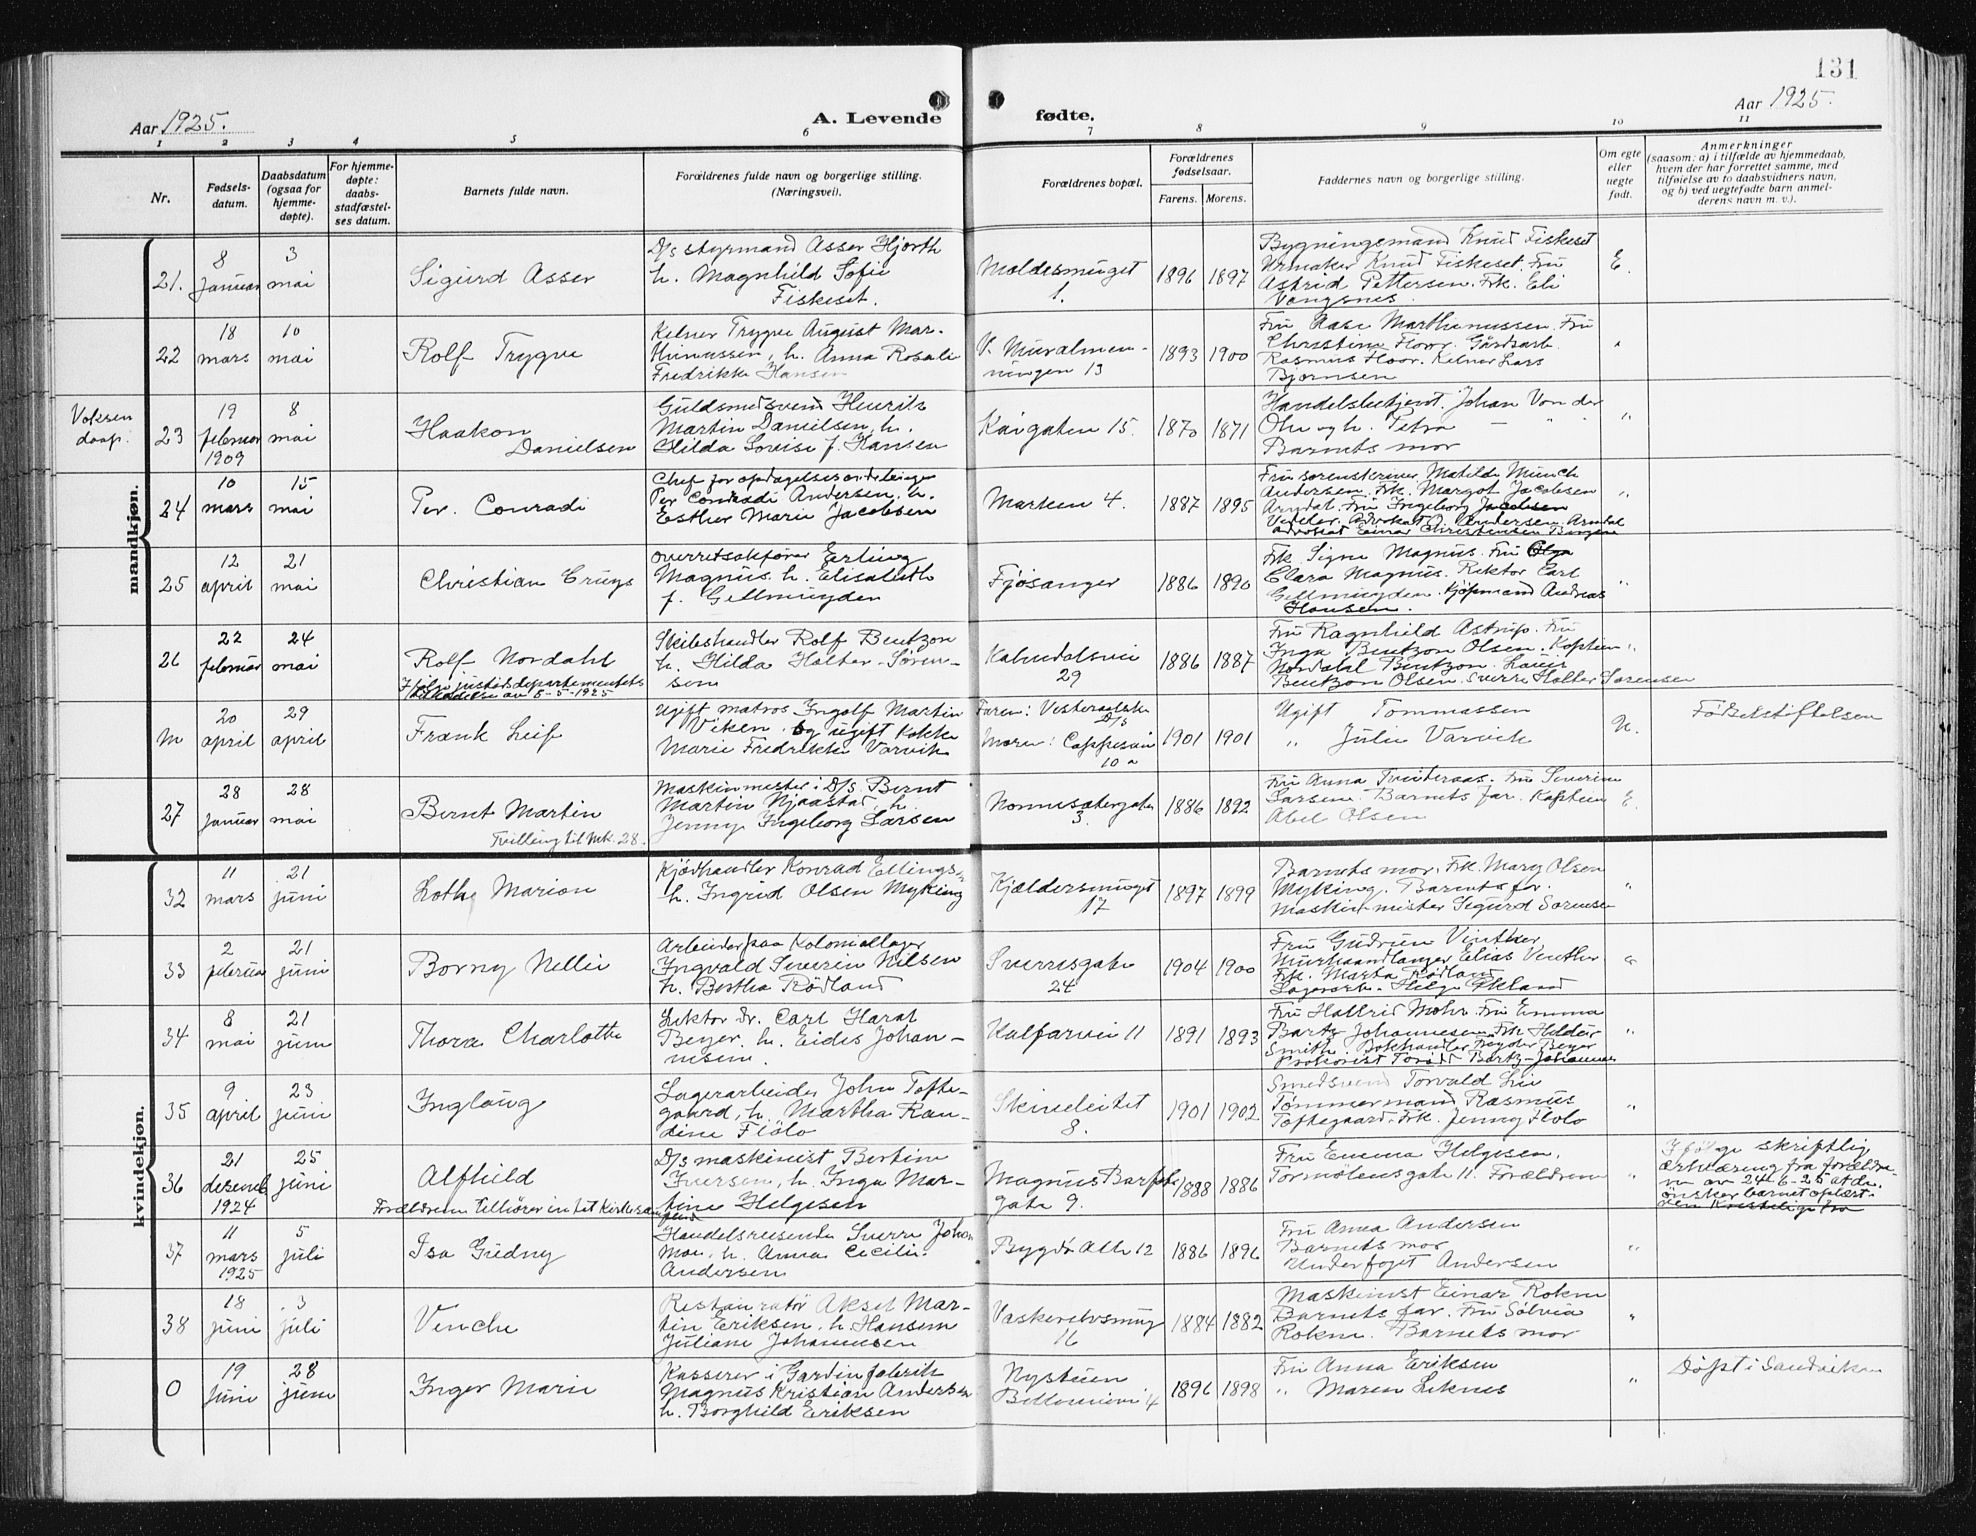 131
Aar 1925.
A. Levende
fødte.
Aar 1925.
1 2 3 4 5 6 7 8 9 10 11
Nr.
Fødsels-
datum.
Daabsdatum
(ogsaa for
hjemme-
døpte).
For hjemme-
døpte:
daabs-
stadfæstel-
ses datum.
Barnets fulde navn.
Forældrenes fulde navn og borgerlige stilling.
(Næringsvei).
Forældrenes bopæl.
Forældrenes
fødselsaar.
Farens. Morens.
Faddernes navn og borgerlige stilling.
Om egte
eller
uegte
født.
Anmerkninger
(saasom: a) i tilfælde av hjemmedaab,
hvem der har forrettet samme, med
tilføielse av to daabsvidners navn,
og b) ved uegtefødte barn anmel-
derens navn m. v.).
mandkjøn.
21.
8
Januar
3
mai
Sigurd Asser
D/s styrmand Asser Hjorth
h. Magnhild Sofie
Fiskeset.
Moldesmuget
1.
1896
1897
Bygningsmand Knud Fiskeset
Urmaker Knud Fiskeset. Fru
Astrid Pettersen. Frk. Eli
Vangsnes.
E.
22
18
mars
10
mai
Rolf Trygve
Kelner Trygve August Mar-
thinussen, h. Anna Rosali
Fredrikke Hansen
V. Muralmen-
ningen 13
1893
1900
Fru Aase Marthinussen. Fru
Christine Floor. Gårdsarb.
Rasmus Floor. Kelner Lars
Bjørnsen
"
Voksen
daap.
23
19
februar
1909
8
mai
Haakon
Danielsen
Guldsmedsvend Henrik
Martin Danielsen, h.
Hilda Lovise f. Hansen
Kaigaten 15.
1870
1871
Handelsbetjent. Johan Von der
Ohe og h. Petra — " "
Barnets mor
"
24
10
mars
15
mai
Per. Conradi
Chef for opdagelsesavdelingen
Per Conradi Andersen, h.
Esther Marie Jacobsen
Marken 4.
1887
1895
Fru sorenskriver Matilde Munch
Andersen. Frk. Margot Jacobsen
Arndal. Fru Ingeborg Jacobsen
Advokat Einar Christensen Bergen
"
25
12
april
21
mai
Christian Cruys
Overretssakfører Erling
Magnus. h. Elisabeth
f. Gellmuyden
Fjøsanger
1886
1890
Frk. Signe Magnus. Fru Olga
Clara Magnus. Rektor Carl
Gellmuyden. Kjøpmand Andreas
Hansen.
"
26
22
februar
24
mai
Rolf Nordahl
Ifølge justisdepartementets
tilladelse av 5-5-1925
Skibshandler Rolf Bentzon
h. Hilda Holter-Søren-
sen
Kalvedalsvei
29
1886
1887
Fru Ragnhild Astrup. Fru
Inga Bentzon Olsen. Kaptein
Nordahl Bentzon. Lauri
Bentzon Olsen. Sverre Holter Sørensen
"
m
20
april
29
april
Frank Leif
Ugift matros Ingolf Martin
Viken. Og ugift kokke
Marie Fredrikke Varvik
Faren: Vesteraalske
D/s
Moren: Cappesvei
10 a
1901
1901
Ugift Tommassen
" Julie Varvik
U.
Fødselstiftelsen
27
28
Januar
28
mai
Bernt Martin
Tvilling til Mk. 28.
Maskinmester i D/S. Bernt
Martin Njaastad, h.
Jenny Ingeborg Larsen
Nonnesætergaten
3.
1886
1892
Fru Anna Tveiteraas. Fru Severine
Larsen. Barnets far. Kaptein
Abel Olsen
E.
kvindekjøn.
32
11
mars
21
juni
Lothe Marion
Kjødhandler Konrad Ellings-
h. Ingrid Olsen Myking
Kjældersmuget
17
1897
1899
Barnets mor. Frk. Mary Olsen
Myking. Barnets far.
Maskinmester Sigurd Sørensen
"
33
2
februa
21
juni
Borny Nellie
Arbeider paa Koloniallager
Ingvald Severin Nilsen
h. Bertha Rødland
Sverresgate
24
1904
1900
Fru Gudrun Vinther
Murhaandlanger Elias Vinther
Frk. Marta Rødland
Lagerarb. Helge Økland
"
34
8
mai
21
juni
Thora Charlotte
Lektor Dr. Carl Harat
Beyer. h. Eides Johan-
nesen.
Kalfarvei 11
1891
1893
Fru Hallrid Mohr. Fru Emma
Bartz Johannesen. Frk Heldur
Smith. Bokhandler Frøyder Beyer
Prokurist Tordt Bartz-Johannes
"
35
9
april
23
juni
Inglaug
Lagerarbeider John Tofte-
gaard, h. Martha Ran-
dine Flølo
Skiveleitet
8.
1901
1902
Smedsvend Torvald Lie
Tømmermand Rasmus
Toftegaard. Frk. Jenny Flolo
"
36
21
dezemb
1924
25
juni
Alfhild
Forældrene tilhører intet kirkesam
fund
D/s maskinist Bertin
Iversen, h. Inga Mar-
tine Helgesen
Magnus Barfots
gate 9.
1888
1886
Fru Emma Helgesen,
Tormølensgate 11. Forældrene
"
Ifølge skriftlig
erklæring fra forældre
ne av 24-6-25 at de
ønsker barnet oplært i
den Kristelige tro
37
11
mars
1925
5
juli
Isa Gudny
Handelsreisende Sverre Johan
Moe, h. Anna Cecilie
Andersen
Bygdø Alle 12
1886
1896
Fru Anna Andersen
Barnets mor
Underfoget Andersen
"
38
18
juni
3
juli
Venche
Restauratør Aksel Mar-
tin Eriksen. h. Hansine
Juliane Johannesen
Vaskerelvsmug
16
1884
1882
Maskinist Einar Rokne
Barnets far. Fru Solvia
Rokne. Barnets mor
"
0
19
juni
28
juni
Inger Marie
Kasserer i Gardinfabrik
Magnus Kristian Andersen
h. Borghild Eriksen
Nystuen
1896
1898
Fru Anna Eriksen
" Maren Leknes
"
Døpt i Sandviken